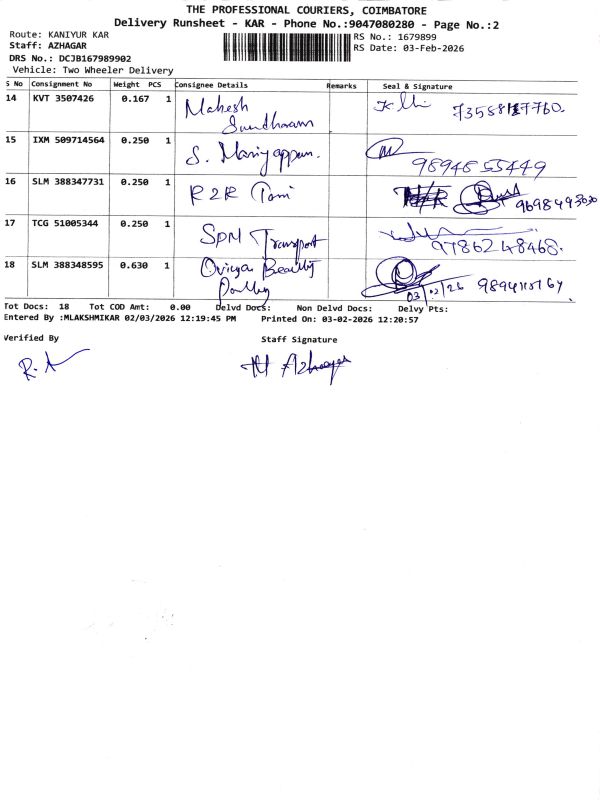 THE PROFESSIONAL COURIERS, COIMBATORE
Delivery Runsheet - KAR - Phone No.:9047080280 - Page No.:2
Route: KANIYUR KAR
RS No.: 1679899
Staff: AZHAGAR
RS Date: 03-Feb-2026
DRS No.: DCJB167989902
Vehicle: Two Wheeler Delivery
S No Consignment No Weight PCS Consignee Details Remarks Seal & Signature
14 KVT 3507426 0.167 1 Mahesh
Sundharam
15 IXM 509714564 0.250 1 S. Mariyappan. 9894655449
16 SLM 388347731 0.250 1 R2R 9698493030
17 TCG 51005344 0.250 1 SDM Transport 9786248468.
18 SLM 388348595 0.630 1 Oviya Beauty
03/02/26
Tot Docs: 18 Tot COD Amt: 0.00 Delvd Docs: Non Delvd Docs: Delvy Pts:
Entered By :MLAKSHMIKAR 02/03/2026 12:19:45 PM Printed On: 03-02-2026 12:20:57
Verified By Staff Signature